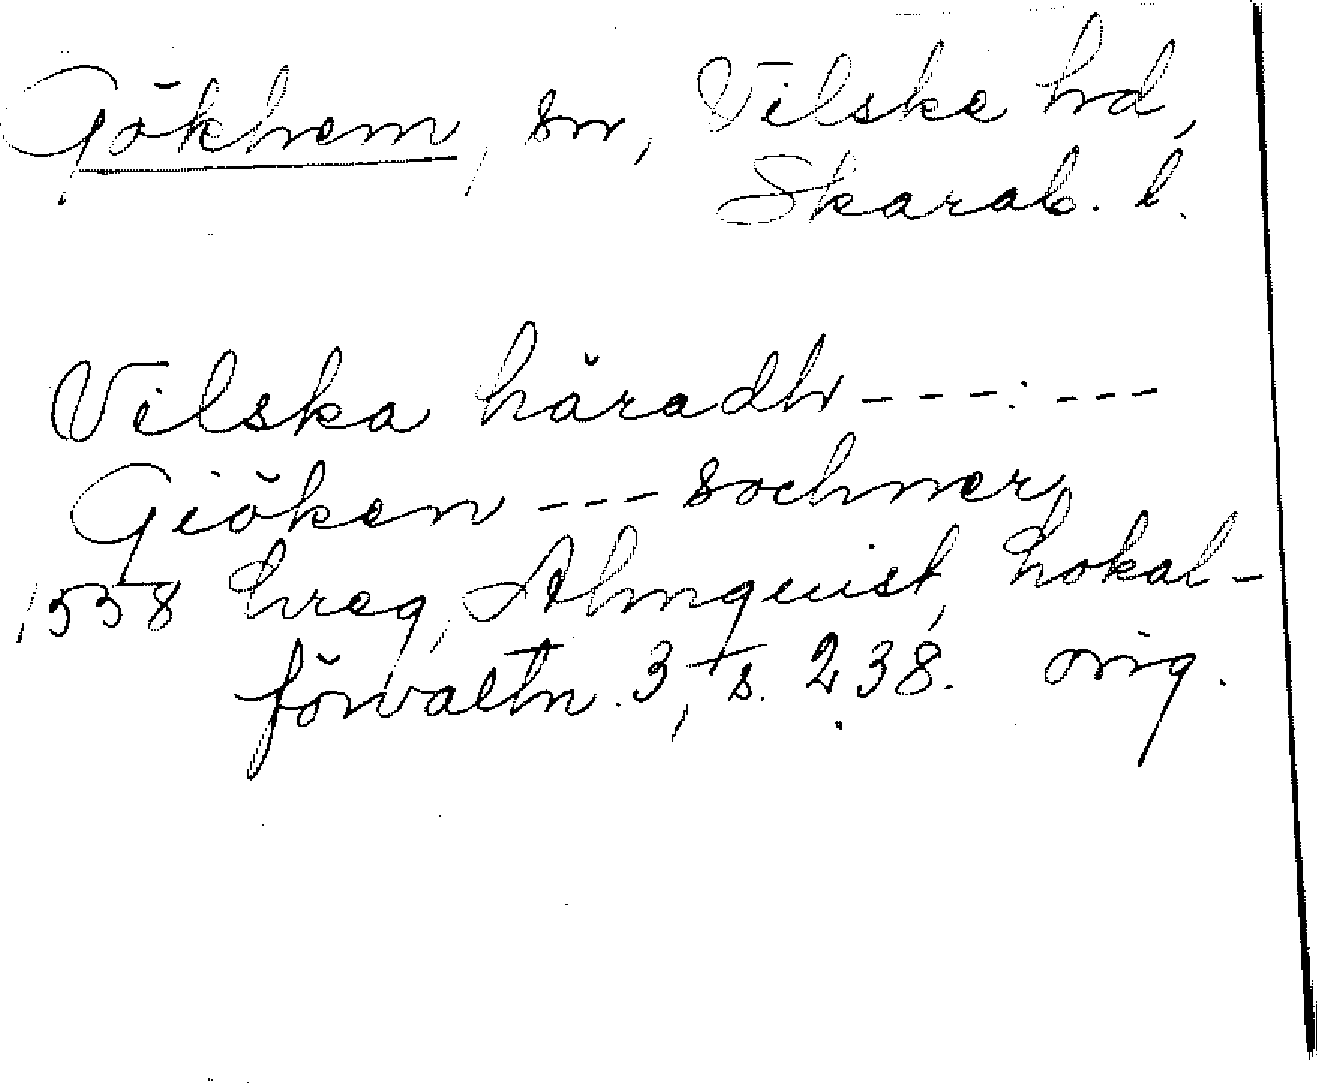 Gökhem, sn, Vilske hd,
Skarab. l.
Vilska häradh ---:---
Giöken --- sochner
1558 hreg, Almquist, Lokal-
förvaltn. 3, s. 238. orig.